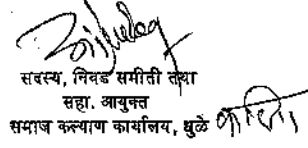 सदस्य, निवड समीती तथा
सहा. आयुक्त
समाज कल्याण कार्यालय, धुळे